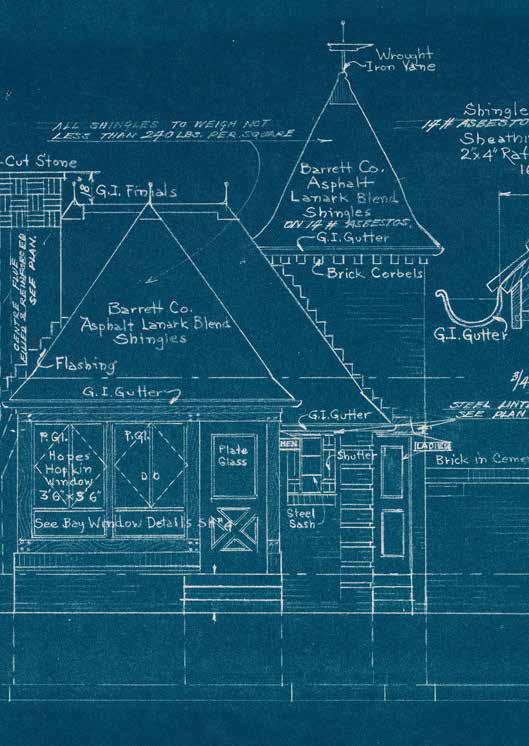 Wrought
Iron Vane
ALL SHINGLES TO WEIGH NOT
LESS THAN 240 LBS. PER SQUARE
Shingle
14# ASBESTO
Sheathi
2"x4" Raf
Cut Stone
18"
G.I. Finials
Barrett Co.
Asphalt
Lanark Blend
Shingles
ON 14# ASBESTOS.
G.I. Gutter
Brick Corbels
CENTRE FLUE
REINFORCED
SEE PLAN.
Barrett Co.
Asphalt Lanark Blend
Shingles
G.I. Gutter
Flashing
G.I. Gutter
G.I. Gutter
STEEL LINT
SEE PLAN
P.Gl.
P.Gl.
Hopes
Hopkin
Window
DO
Plate
Glass
MEN
Shutter
LADIES
Brick in Ceme
See Bay Window Details
Steel
Sash